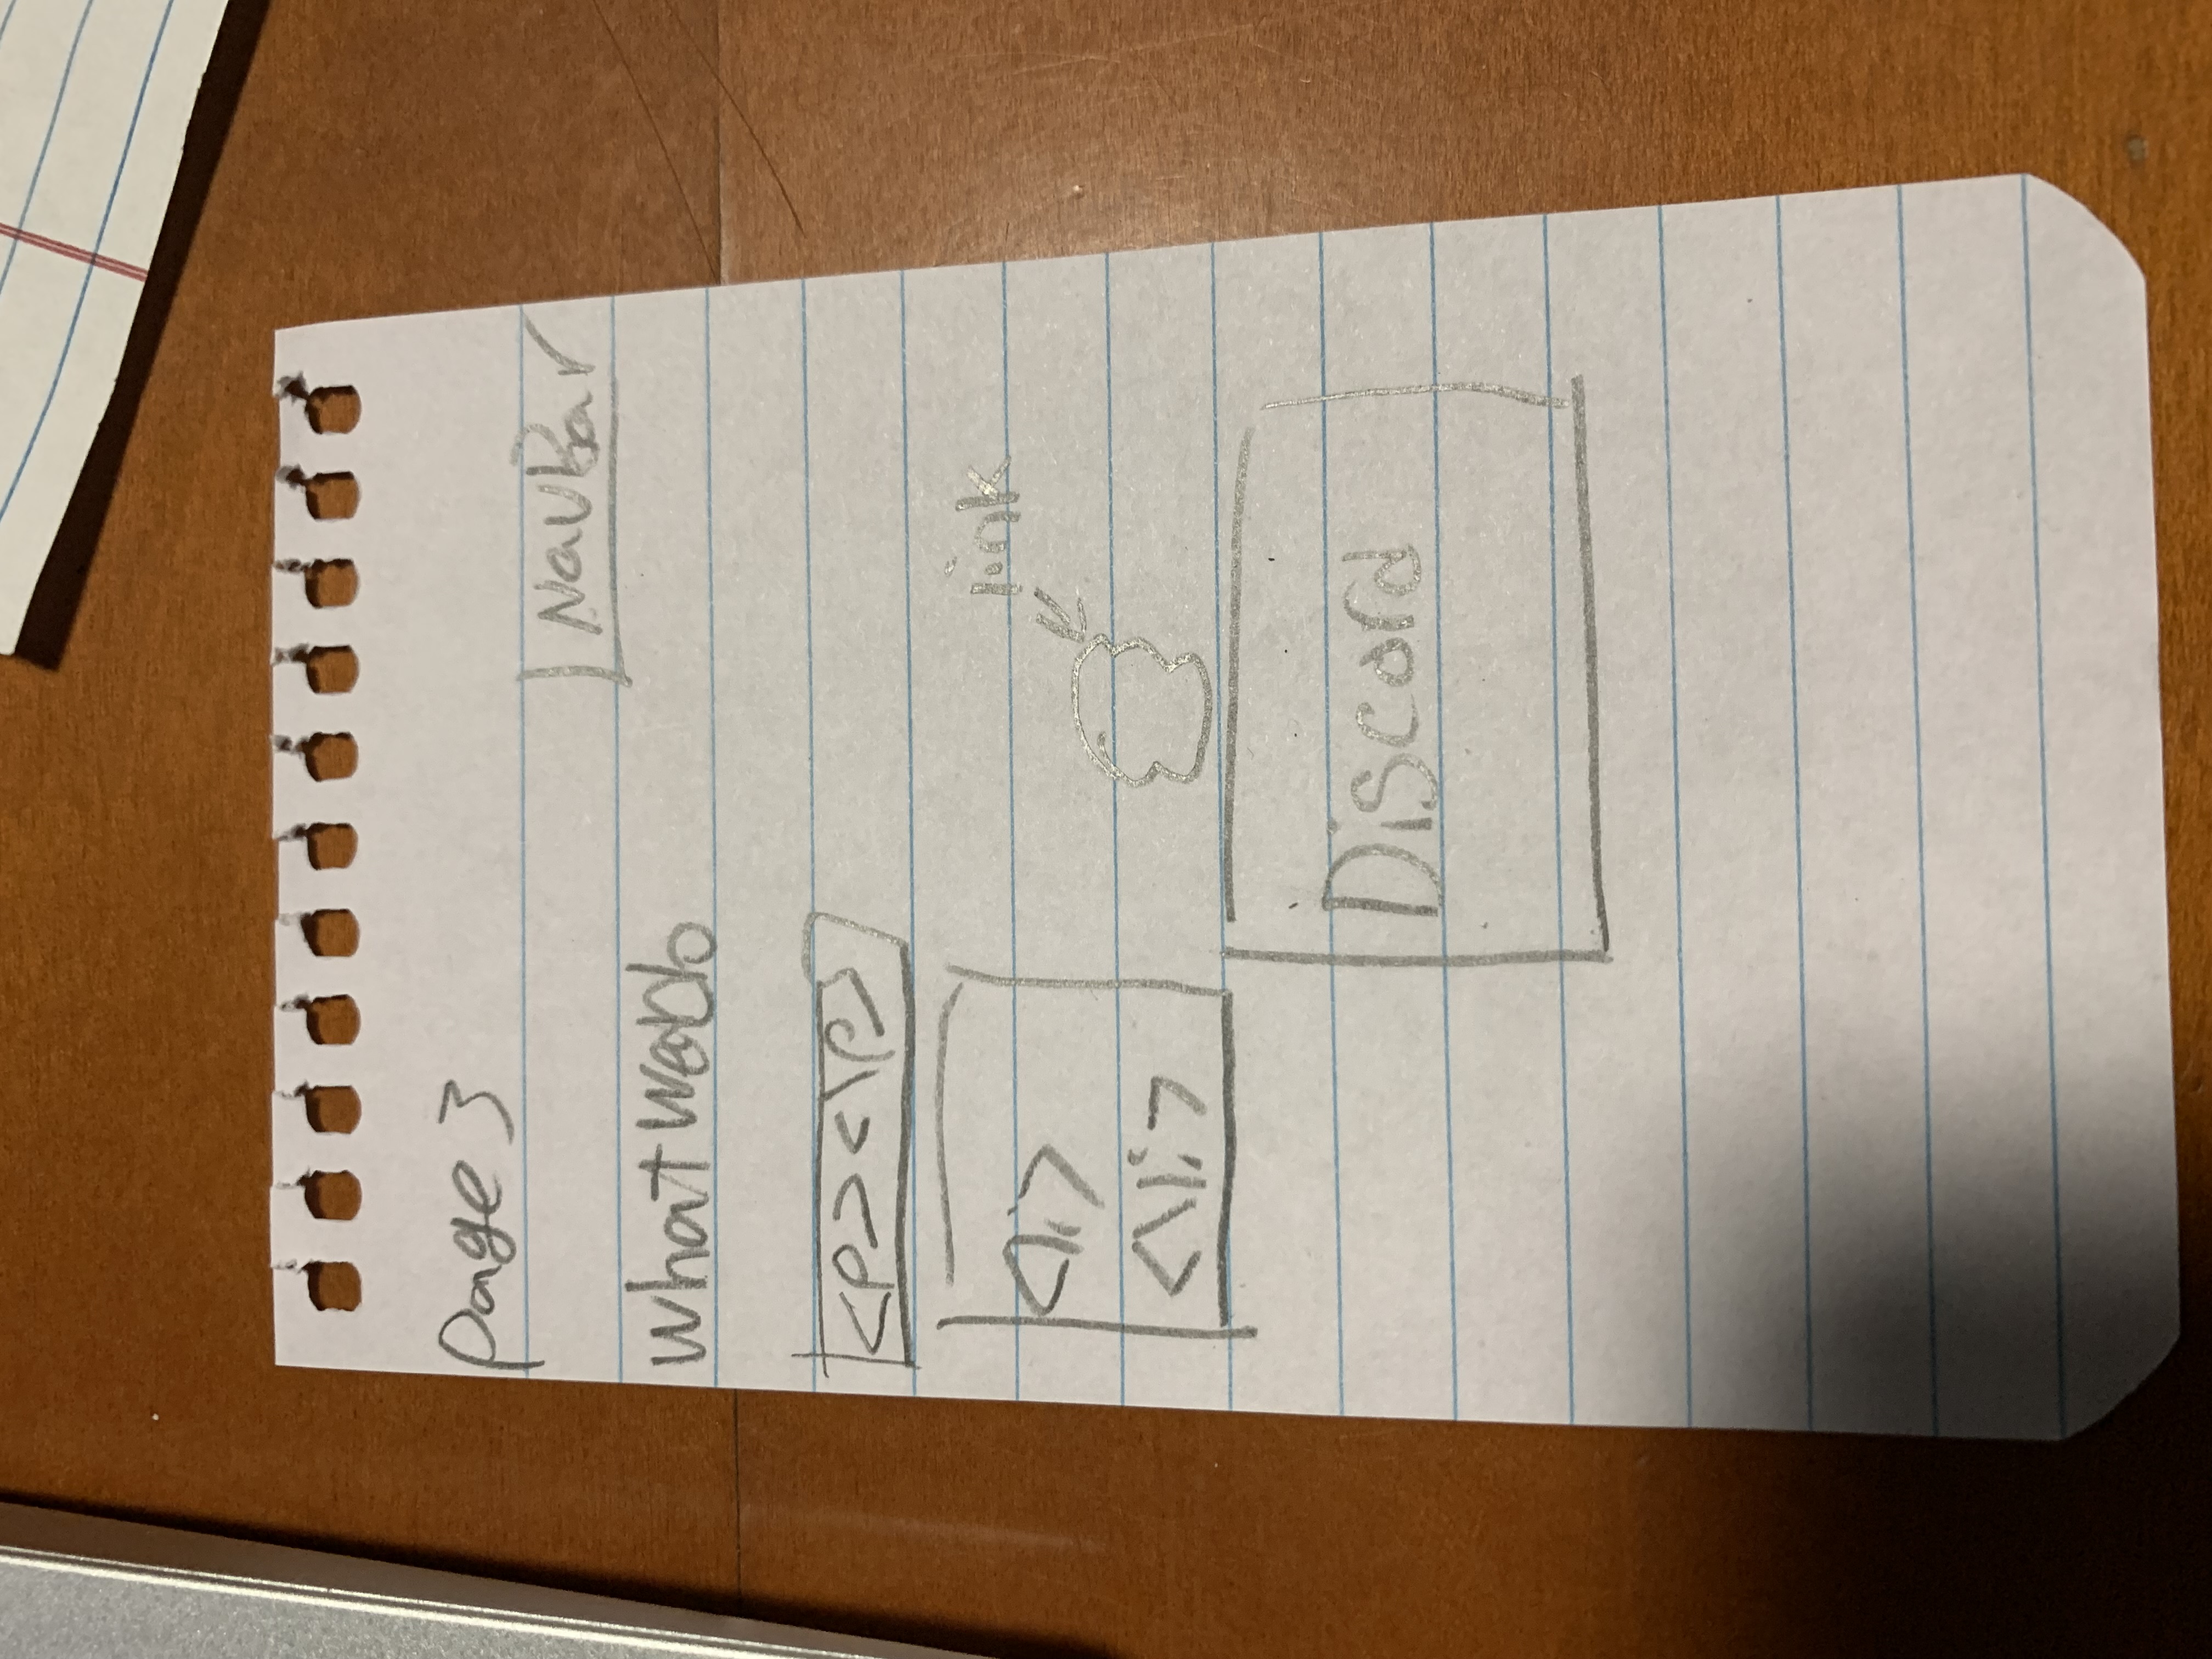 Page 3
NavBar
What We Do
<p><\p>
<li>
<\li>
link
Discord